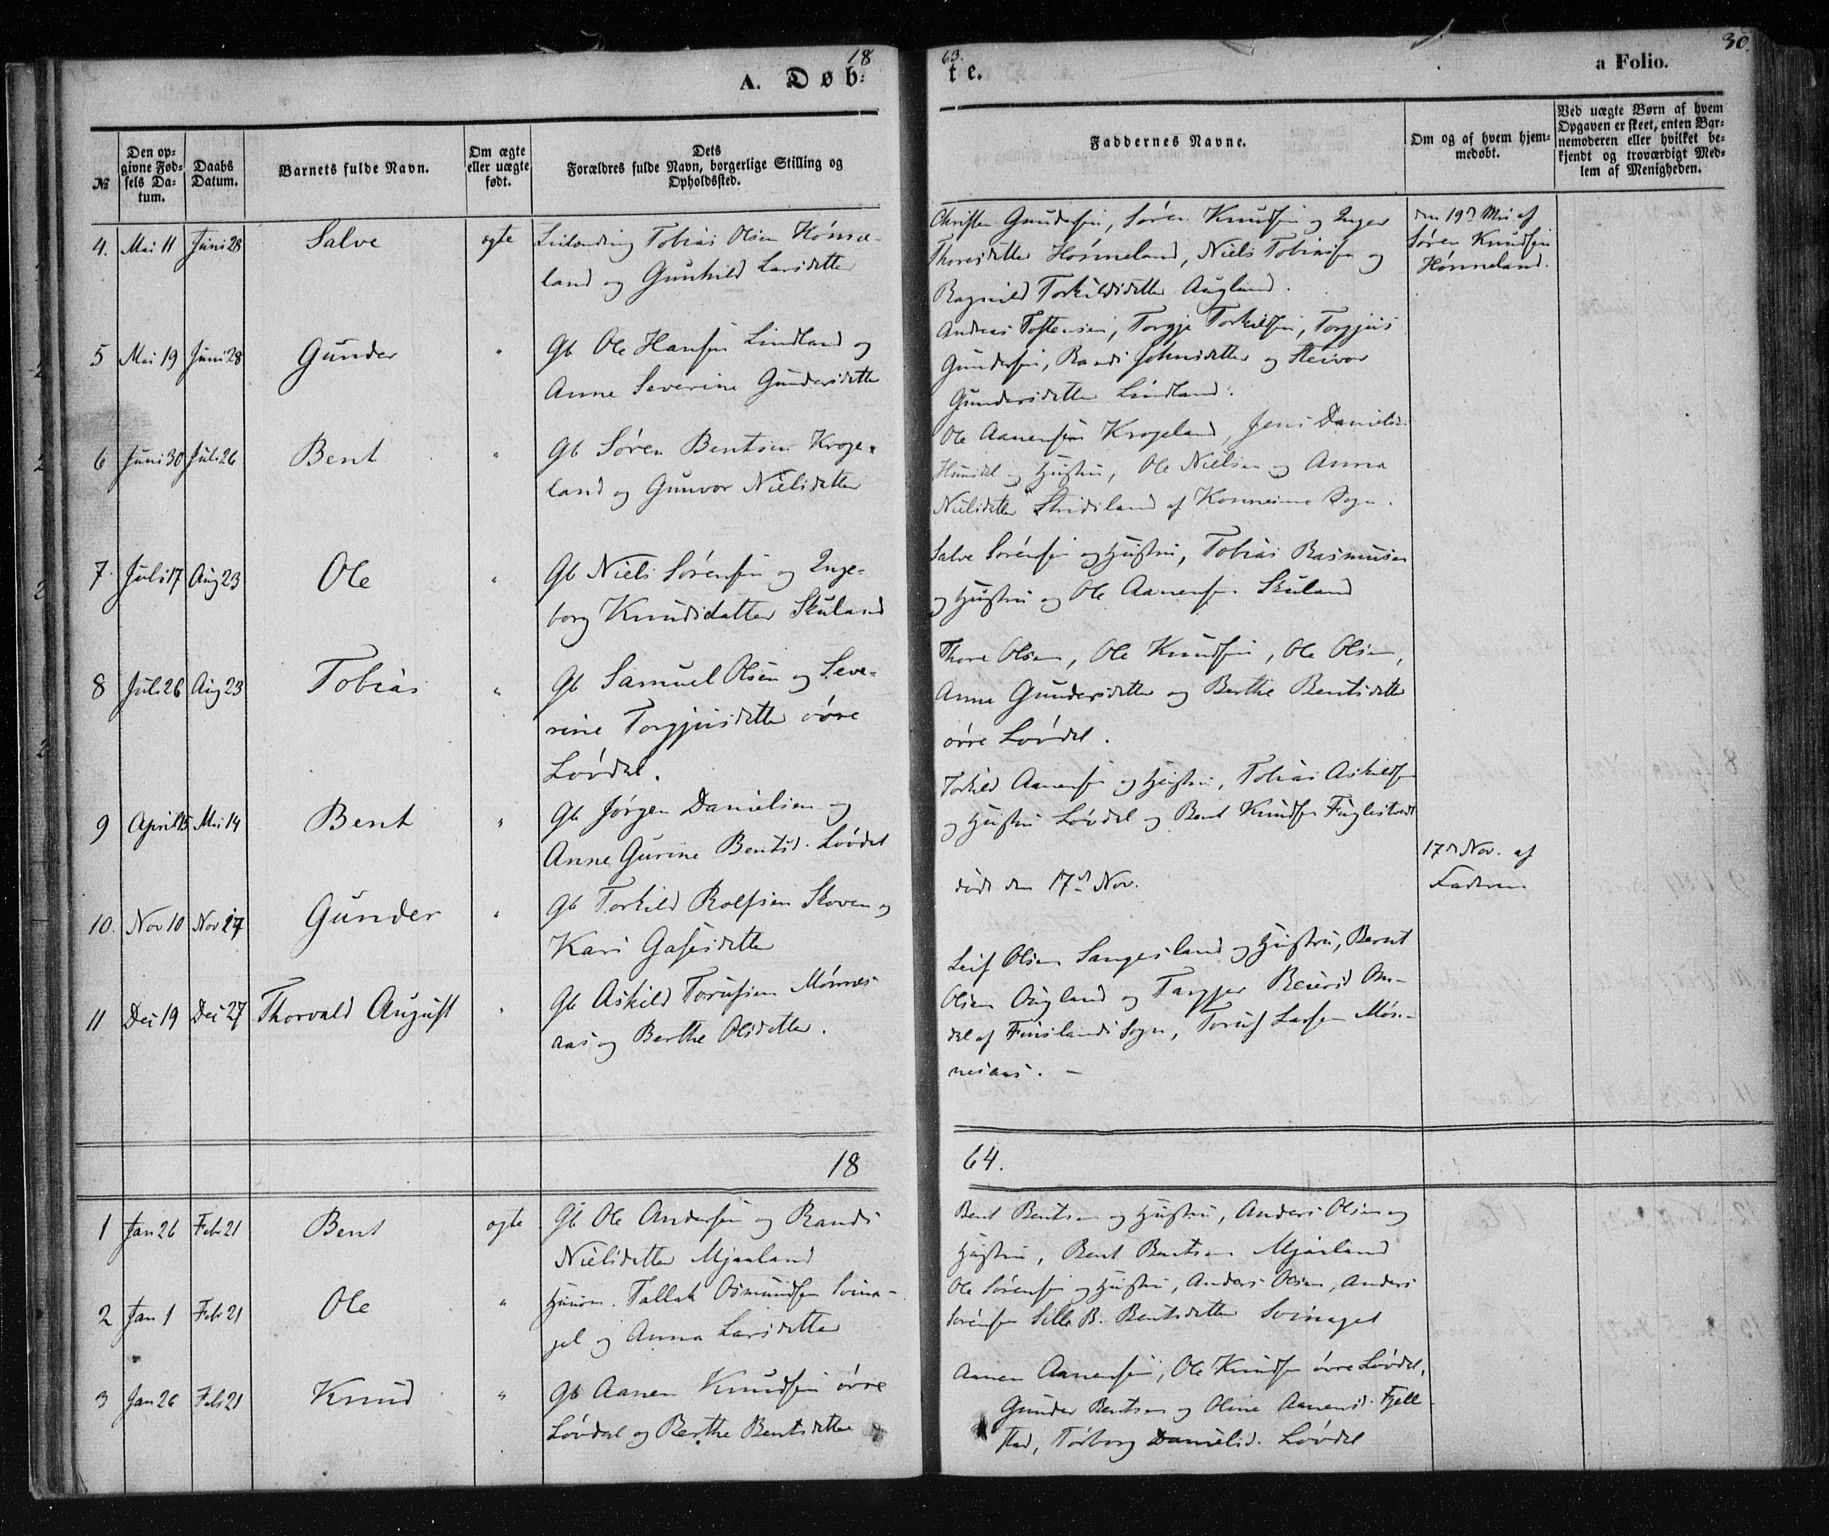 18 63.
A. Døb: te.
a Folio. 30.
№ Den opgivne Fødsels Datum. Daabs Datum. Barnets fulde Navn. Om ægte eller uægte født. Dets Forældres fulde Navn, borgerlige Stilling og Opholdssted. Faddernes Navne. Om og af hvem hjemmedøbt. Ved uægte Børn af hvem Opgaven er skeet, enten Barnemoderen eller hvilket bekjendt og troværdigt Medlem af Menigheden.
4. Mai 11 Juni 28 Salve ægte Leilænding Tobias Olsen Hónne-
land og Gunhild Larsdatter
Christen Gundersen, Søren Knudsen og Inger
Thoresdatter Hónneland, Niels Tobiassen og
Ragnild Torkildsdatter Augland.
den 19de Mai af
Søren Knudsen
Hónneland.
5 Mai 19 Juni 28 Gunder " Gb Ole Hansen Lindland og
Anne Severine Gundersdatter
Andreas Toftensen, Torgje Torkildsen, Torgjus
Gundersen, Randi Johnsdatter og Steivor
Gundersdatter Lindland.
6 Juni 30 Juli 26 Bent " Gb Søren Bentsen Kroge-
land og Gunvor Nielsdatter
Ole Aanensen Krogeland, Jens Daniels.
og Hustru, Ole Nielsen og Anna
Nielsdatter Stridsland af Konnesmo Sogn.
7. Juli 17 Aug 23 Ole " Gb Niels Sørensen og Inge-
borg Knudsdatter Skuland
Salve Sørensen og Hustru, Tobias Rasmusen
og Hustru og Ole Aanensen Skuland
8 Juli 26 Aug 23 Tobias " Gb Samuel Olsen og Seve-
rine Torgjusdatter óvre
Lóvdal.
Thore Olsen, Ole Knudsen, Ole Olsen,
Anne Gundersdatter og Berthe Bentsdatter
óvre Lóvdal.
9 April 15 Mai 14 Bent " Gb Jørgen Danielsen og
Anne Gurine Bentsd. Lóvdal
Torkild Aanensen og Hustru, Tobias Askildsen
og Hustru Lóvdal og Bent Knudsen Fuglestvedt
10. Nov 10 Nov 17 Gunder " Gb Torkild Rolfsen Skoven og
Kari
død den 17de Nov.
17de Nov. af
Faderen
11 Dec 19 Dec 27 Thorvald August " Gb Askild Torufsen Mónnes-
aas og Berthe Olsdatter.
Leif Olsen Sangesland og Hustru, Bernt
Olsen Augland og
af Finslands Sogn, Toruf Larsen Món-
nesaas. –
18 64.
1 Jan 26 Feb 21 Bent ægte Gb Ole Andersen og Randi
Nielsdatter Mjaaland
Bent Bentsen og Hustru, Anders Olsen og
Hustru, Bent Bentsen Mjaaland
2 Jan 1 Feb 21 Ole " Husm. Tallak Osmundsen Svina-
gel og Anna Larsdatter
Ole Sørensen og Hustru, Anders Olsen, Anders
Sørensen Sille B. Bentsdatter Svinagel
3 Jan 26 Feb 21 Knud " Gb Aanen Knudsen óvre
Lóvdal og Berthe Bentsdatter
Aanen Aanensen, Ole Knudsen óvre Lóvdal,
Gunder Bentsen og Oline Aanensd. Fjell-
stad, Torborg Danielsd. Lóvdal